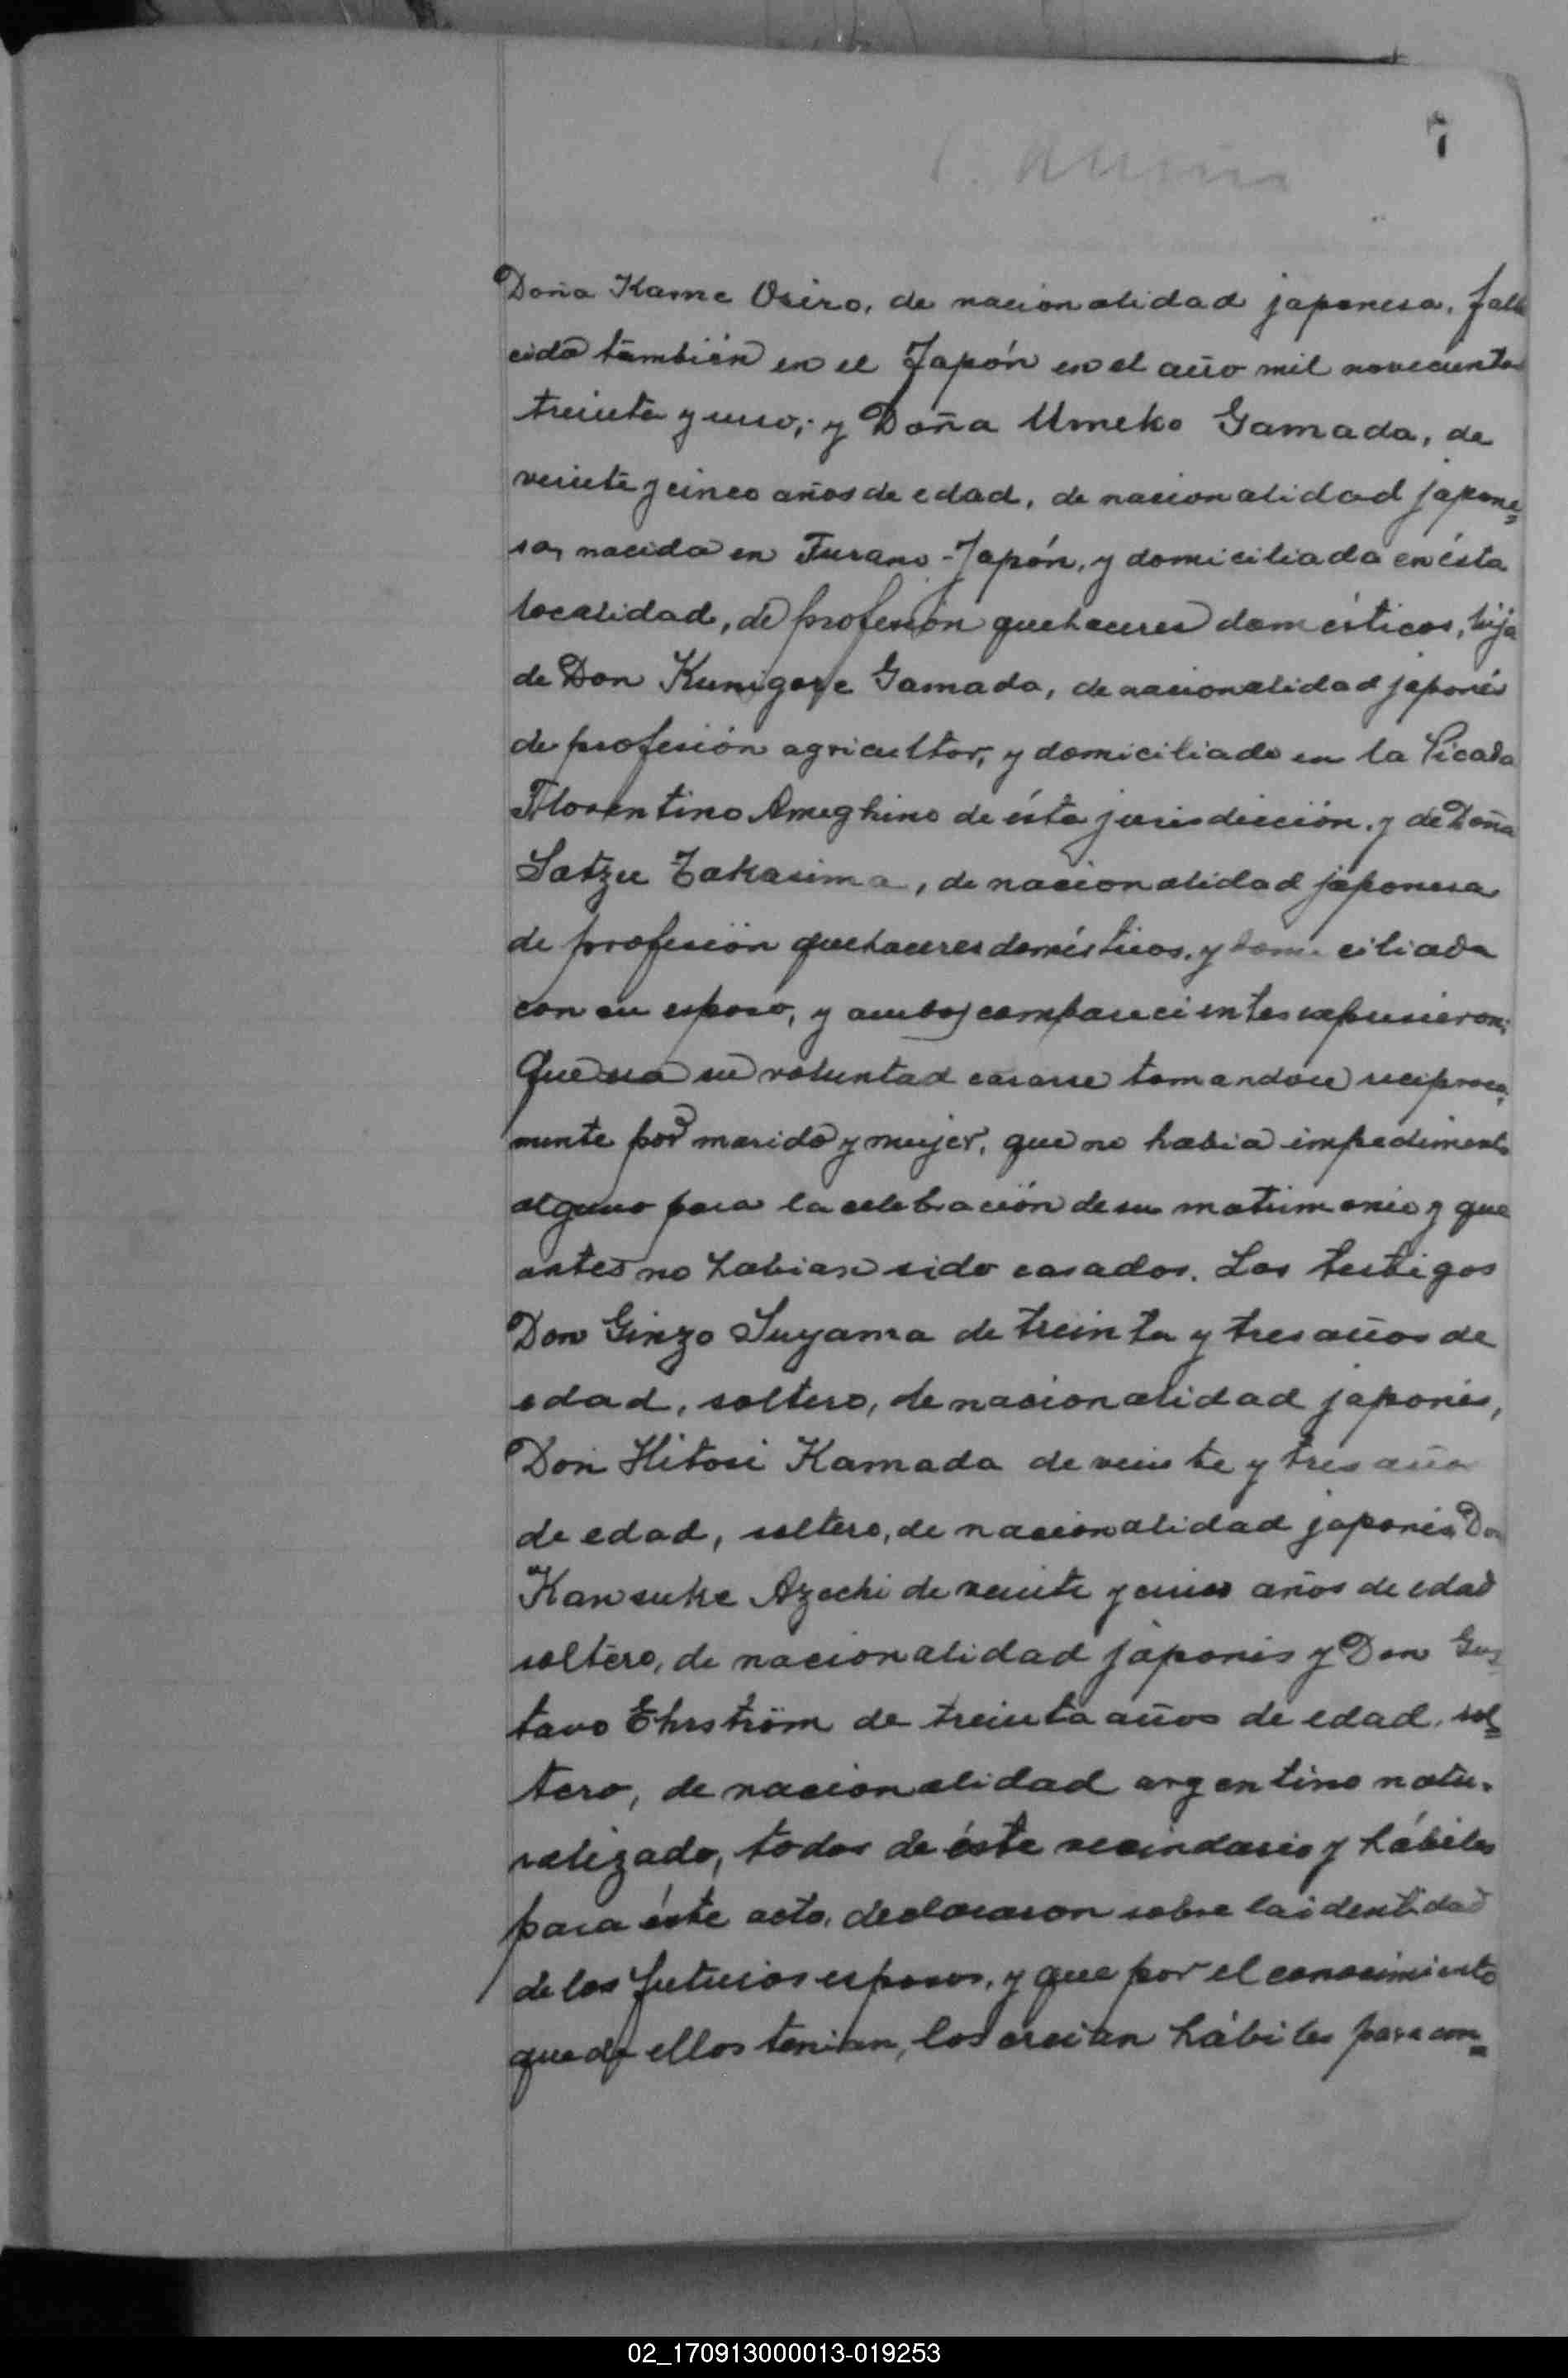 7
Doña Kame Osiro, de nacionalidad japonesa, falle
cida también en el Japón en el año mil novecientos
treinta y uno; y Doña Umeko Gamada, de
veinte y cinco años de edad, de nacionalidad japone=
sa, nacida en Furano-Japón, y domiciliada en ésta
localidad, de profesión quehaceres domésticos, hija
de Don Kunigoye Gamada, de nacionalidad japonés
de profesión agricultor, y domiciliado en la Picada
Florentino Ameghino de ésta jurisdicción, y de Doña
Satzu Takasima, de nacionalidad japonesa
de profesión quehaceres domésticos, y domiciliada
con su esposo, y ambos comparecientes expusieron:
Que era su voluntad casarse tomandose reciproca=
mente por marido y mujer, que no habia impedimento
alguno para la celebración de su matrimonio y que
antes no habian sido casados. Los testigos
Don Ginzo Suyama de treinta y tres años de
edad, soltero, de nacionalidad japonés,
Don Hitosi Kamada de veinte y tres años
de edad, soltero, de nacionalidad japonés, Don
Kansuke Azechi de veinte y cinco años de edad
soltero, de nacionalidad japonés y Don Gus=
tavo Ehrström de treinta años de edad, sol=
tero, de nacionalidad argentino natu=
ralizado, todos de éste vecindario y hábiles
para éste acto, declararon sobre la identidad
de los futuros esposos, y que por el conocimiento
que de ellos tenian, los creian hábiles para con=
02_170913000013-019253